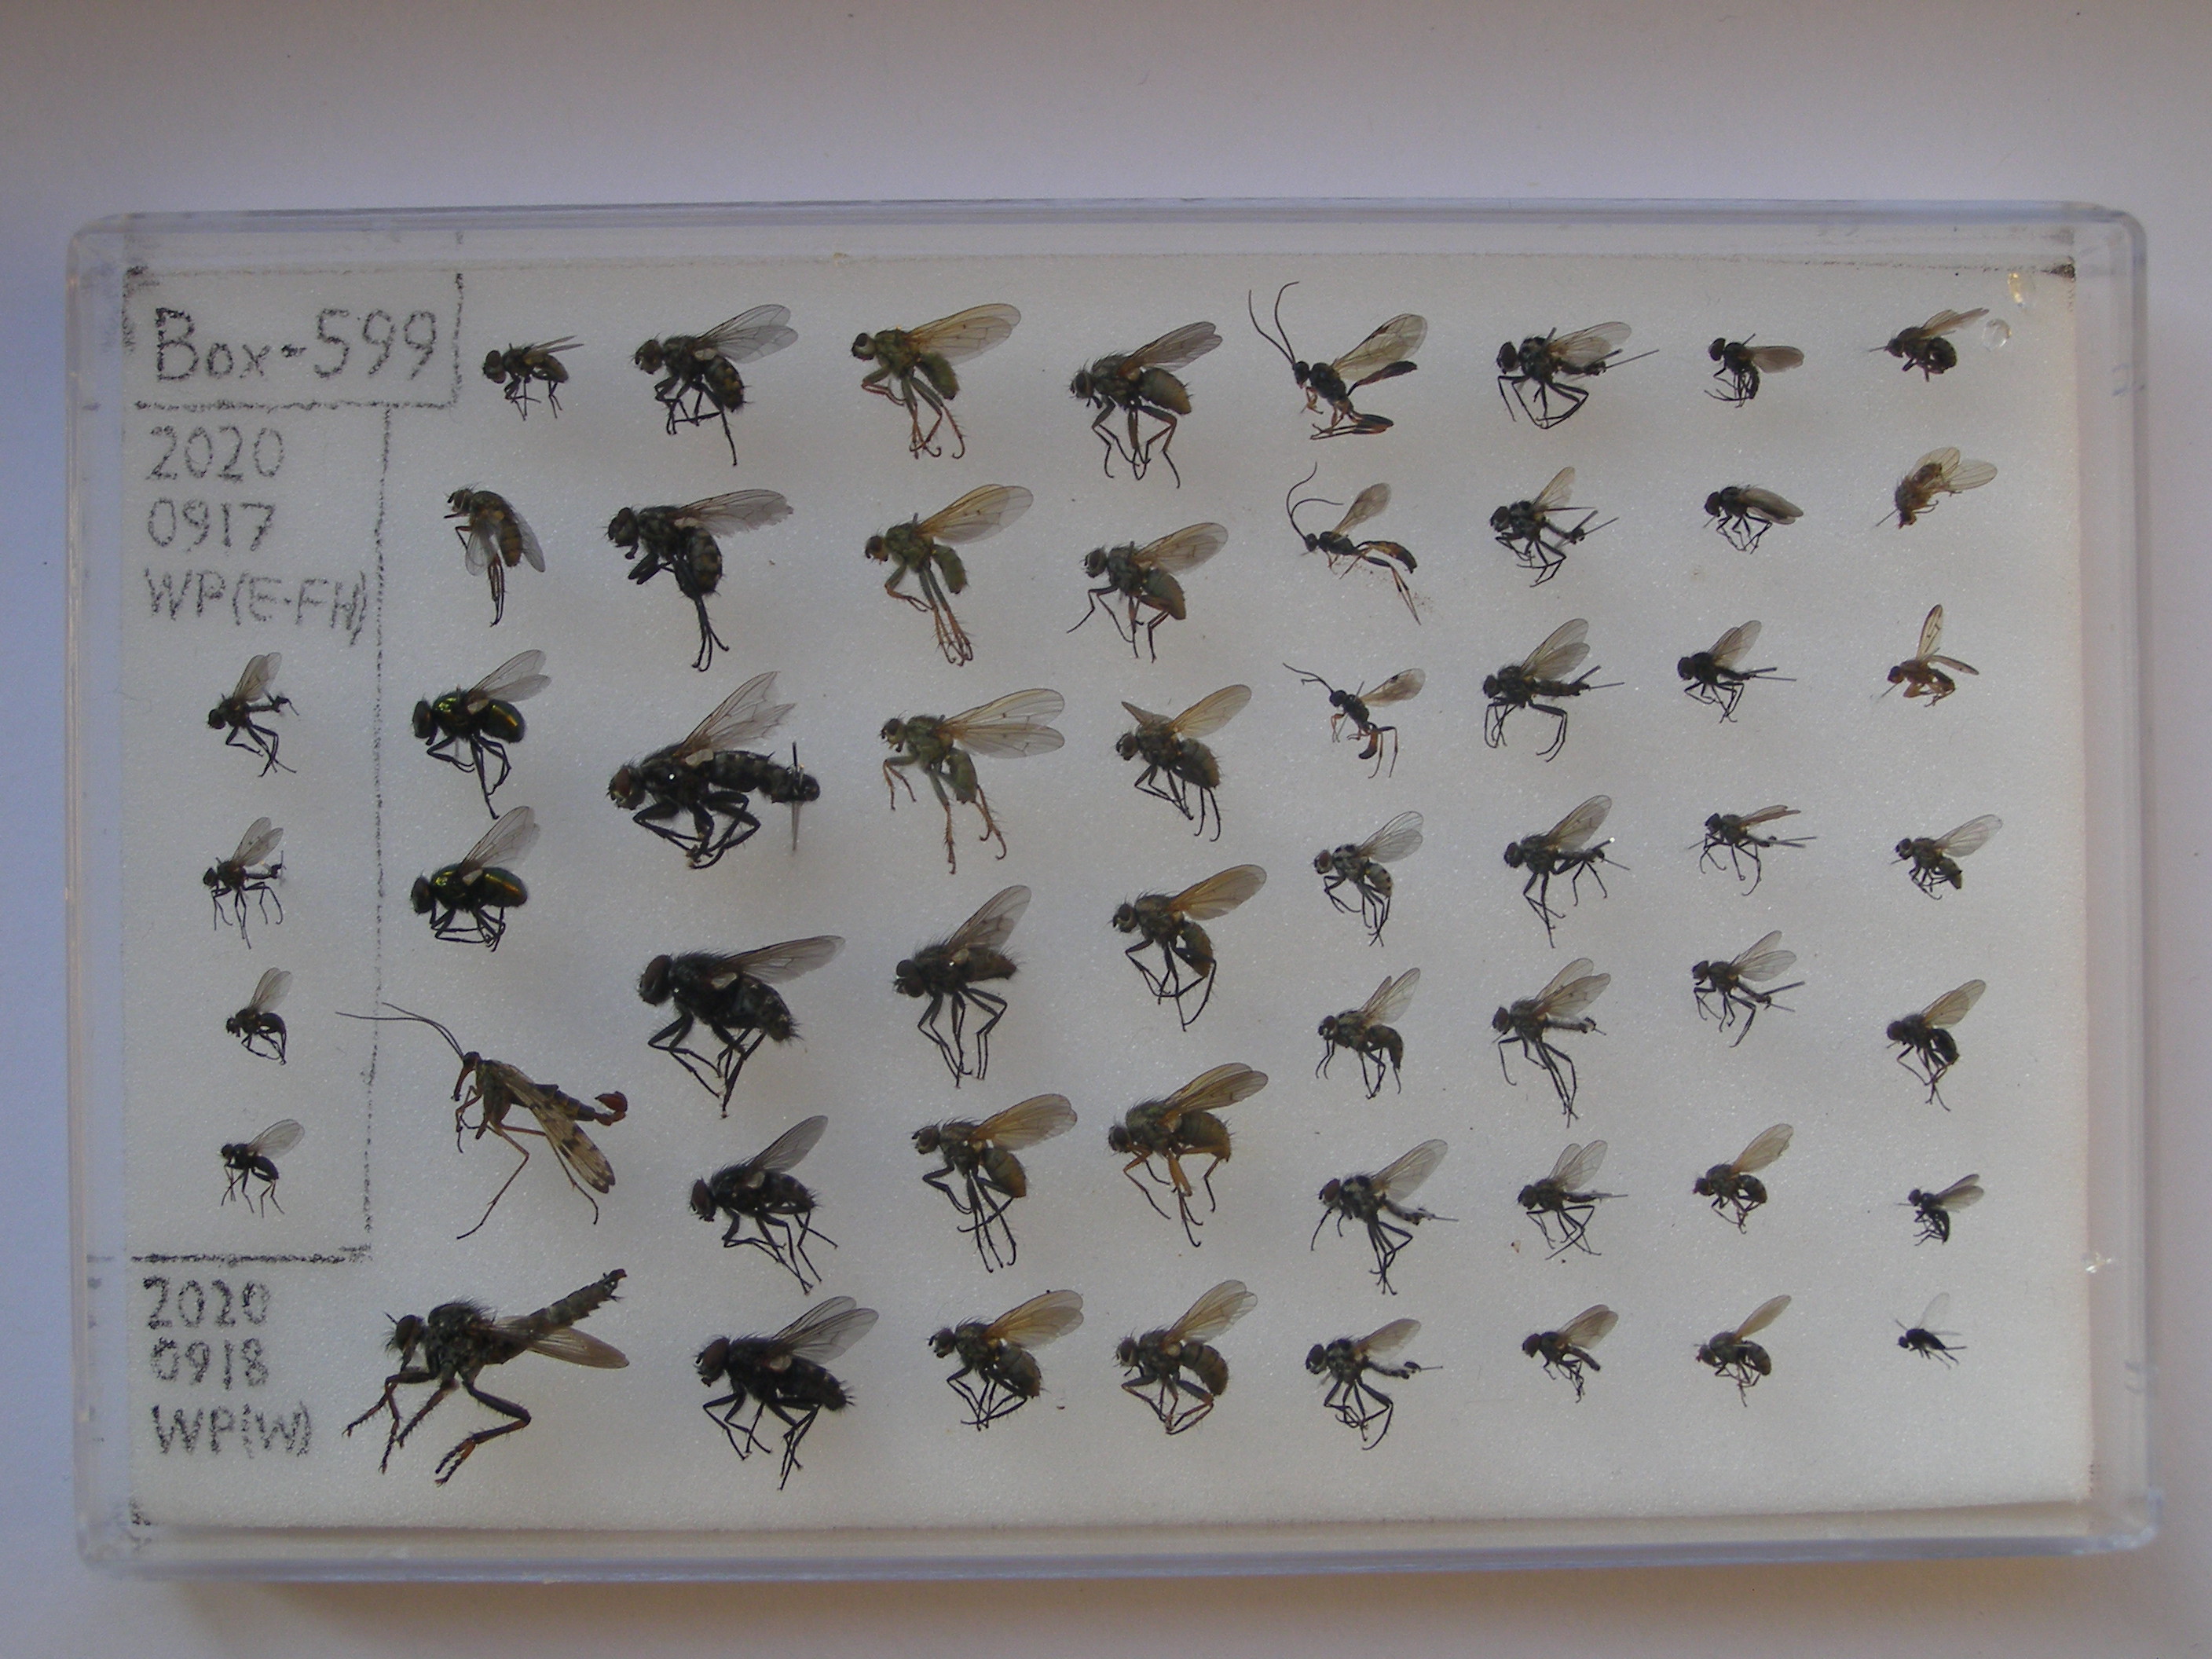 Box-599
2020
0917
WP(E-FH)
2020
0918
WP(W)